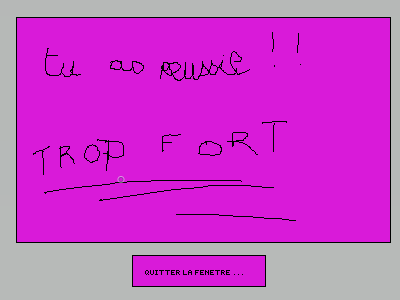 tu as reussie !!
TROP FORT
QUITTER LA FENETRE ...